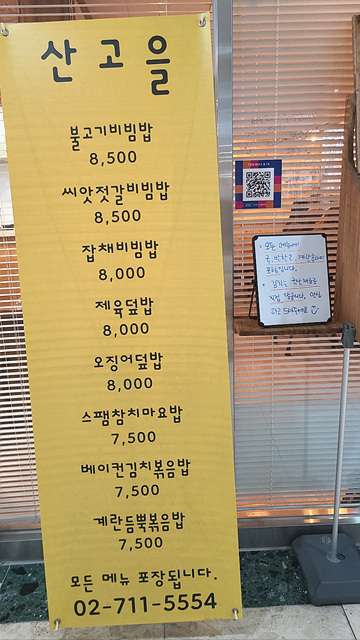 산고을
불고기비빔밥
8,500
씨앗젓갈비빔밥
8,500
잡채비빔밥
8,000
제육덮밥
8,000
오징어덮밥
8,000
스팸참치마요밥
7,500
베이컨김치볶음밥
7,500
계란듬뿍볶음밥
7,500
모든 메뉴 포장됩니다.
02-711-5554
모든 메뉴에
국, 반찬2, 계란후라이
포함입니다.
김치는 국산재료로
직접 담급니다. 안심
하고 드셔주세요